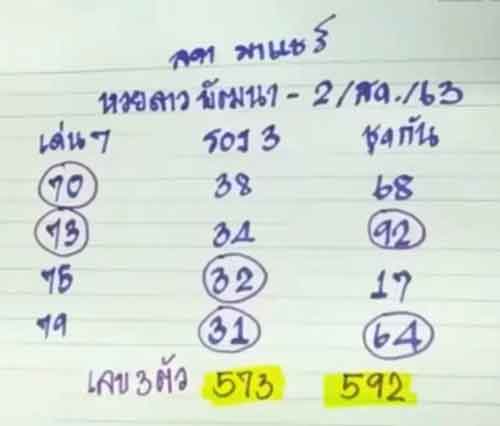 ลดา มาแชร์
หวยลาวพัฒนา - 2/สค./63
เด่น 7 รอง 3 ชุดกัน
70 38 68
73 34 92
75 32 17
79 31 64
เลข 3 ตัว 573 592